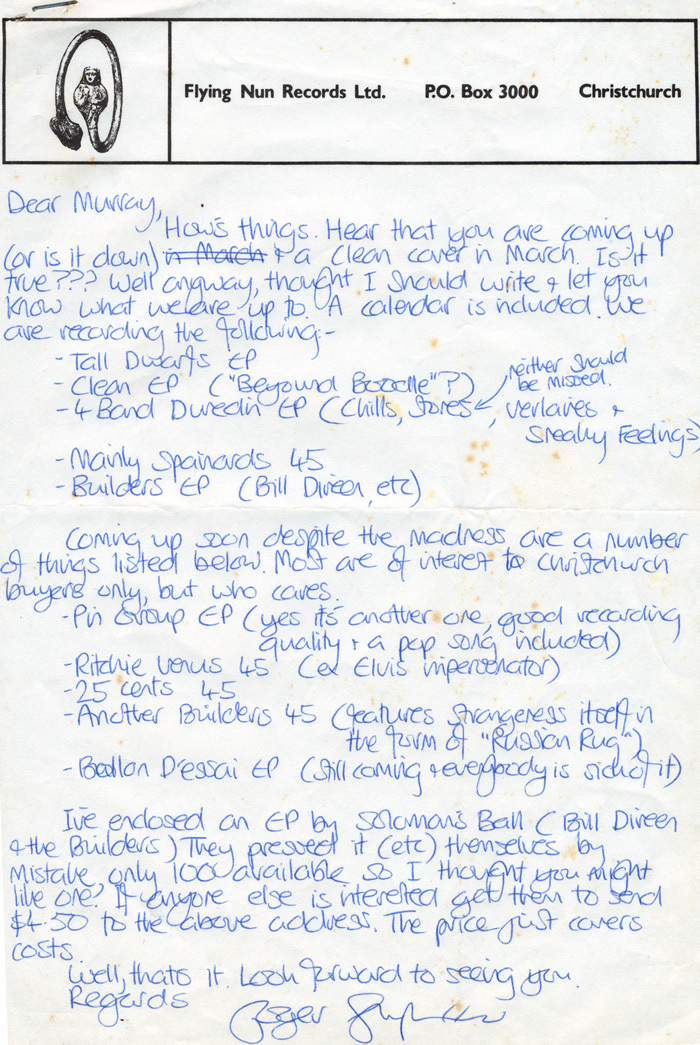 Flying Nun Records Ltd. P.O. Box 3000 Christchurch
Dear Murray,
How's things. Hear that you are coming up
(or is it down) in March & a clean cover in March. Is it
true??? Well anyway, thought I should write & let you
know what we are up to. A calendar is included. We
are recording the following:-
- Tall Dwarfs EP
neither should
be missed.
- Clean EP ("Beyound Boodle"?)
- 4 Band Dunedin EP (Chills, Stones, Verlaines &
Sneaky Feelings)
- Mainly Spainards 45
- Builders EP (Bill Direen, etc)
Coming up soon despite the madness are a number
of things listed below. Most are of interest to Christchurch
buyers only, but who cares.
- Pin Group EP (yes its another one, good recording
quality & a pop song included)
- Ritchie Venus 45 (ex Elvis impersonator)
- 25 cents 45
- Another Builders 45 (features strangeness itself in
the form of "Russian Rug")
- Ballon D'essai EP (still coming & everybody is sick of it)
I've enclosed an EP by Soloman's Ball (Bill Direen
& the Builders) They pressed it (etc) themselves by
mistake, only 100 available so I thought you might
like one? If anyone else is interested get them to send
$4.50 to the above address. The price just covers
costs.
Well, thats it. Look forward to seeing you.
Regards
Roger Shepherd